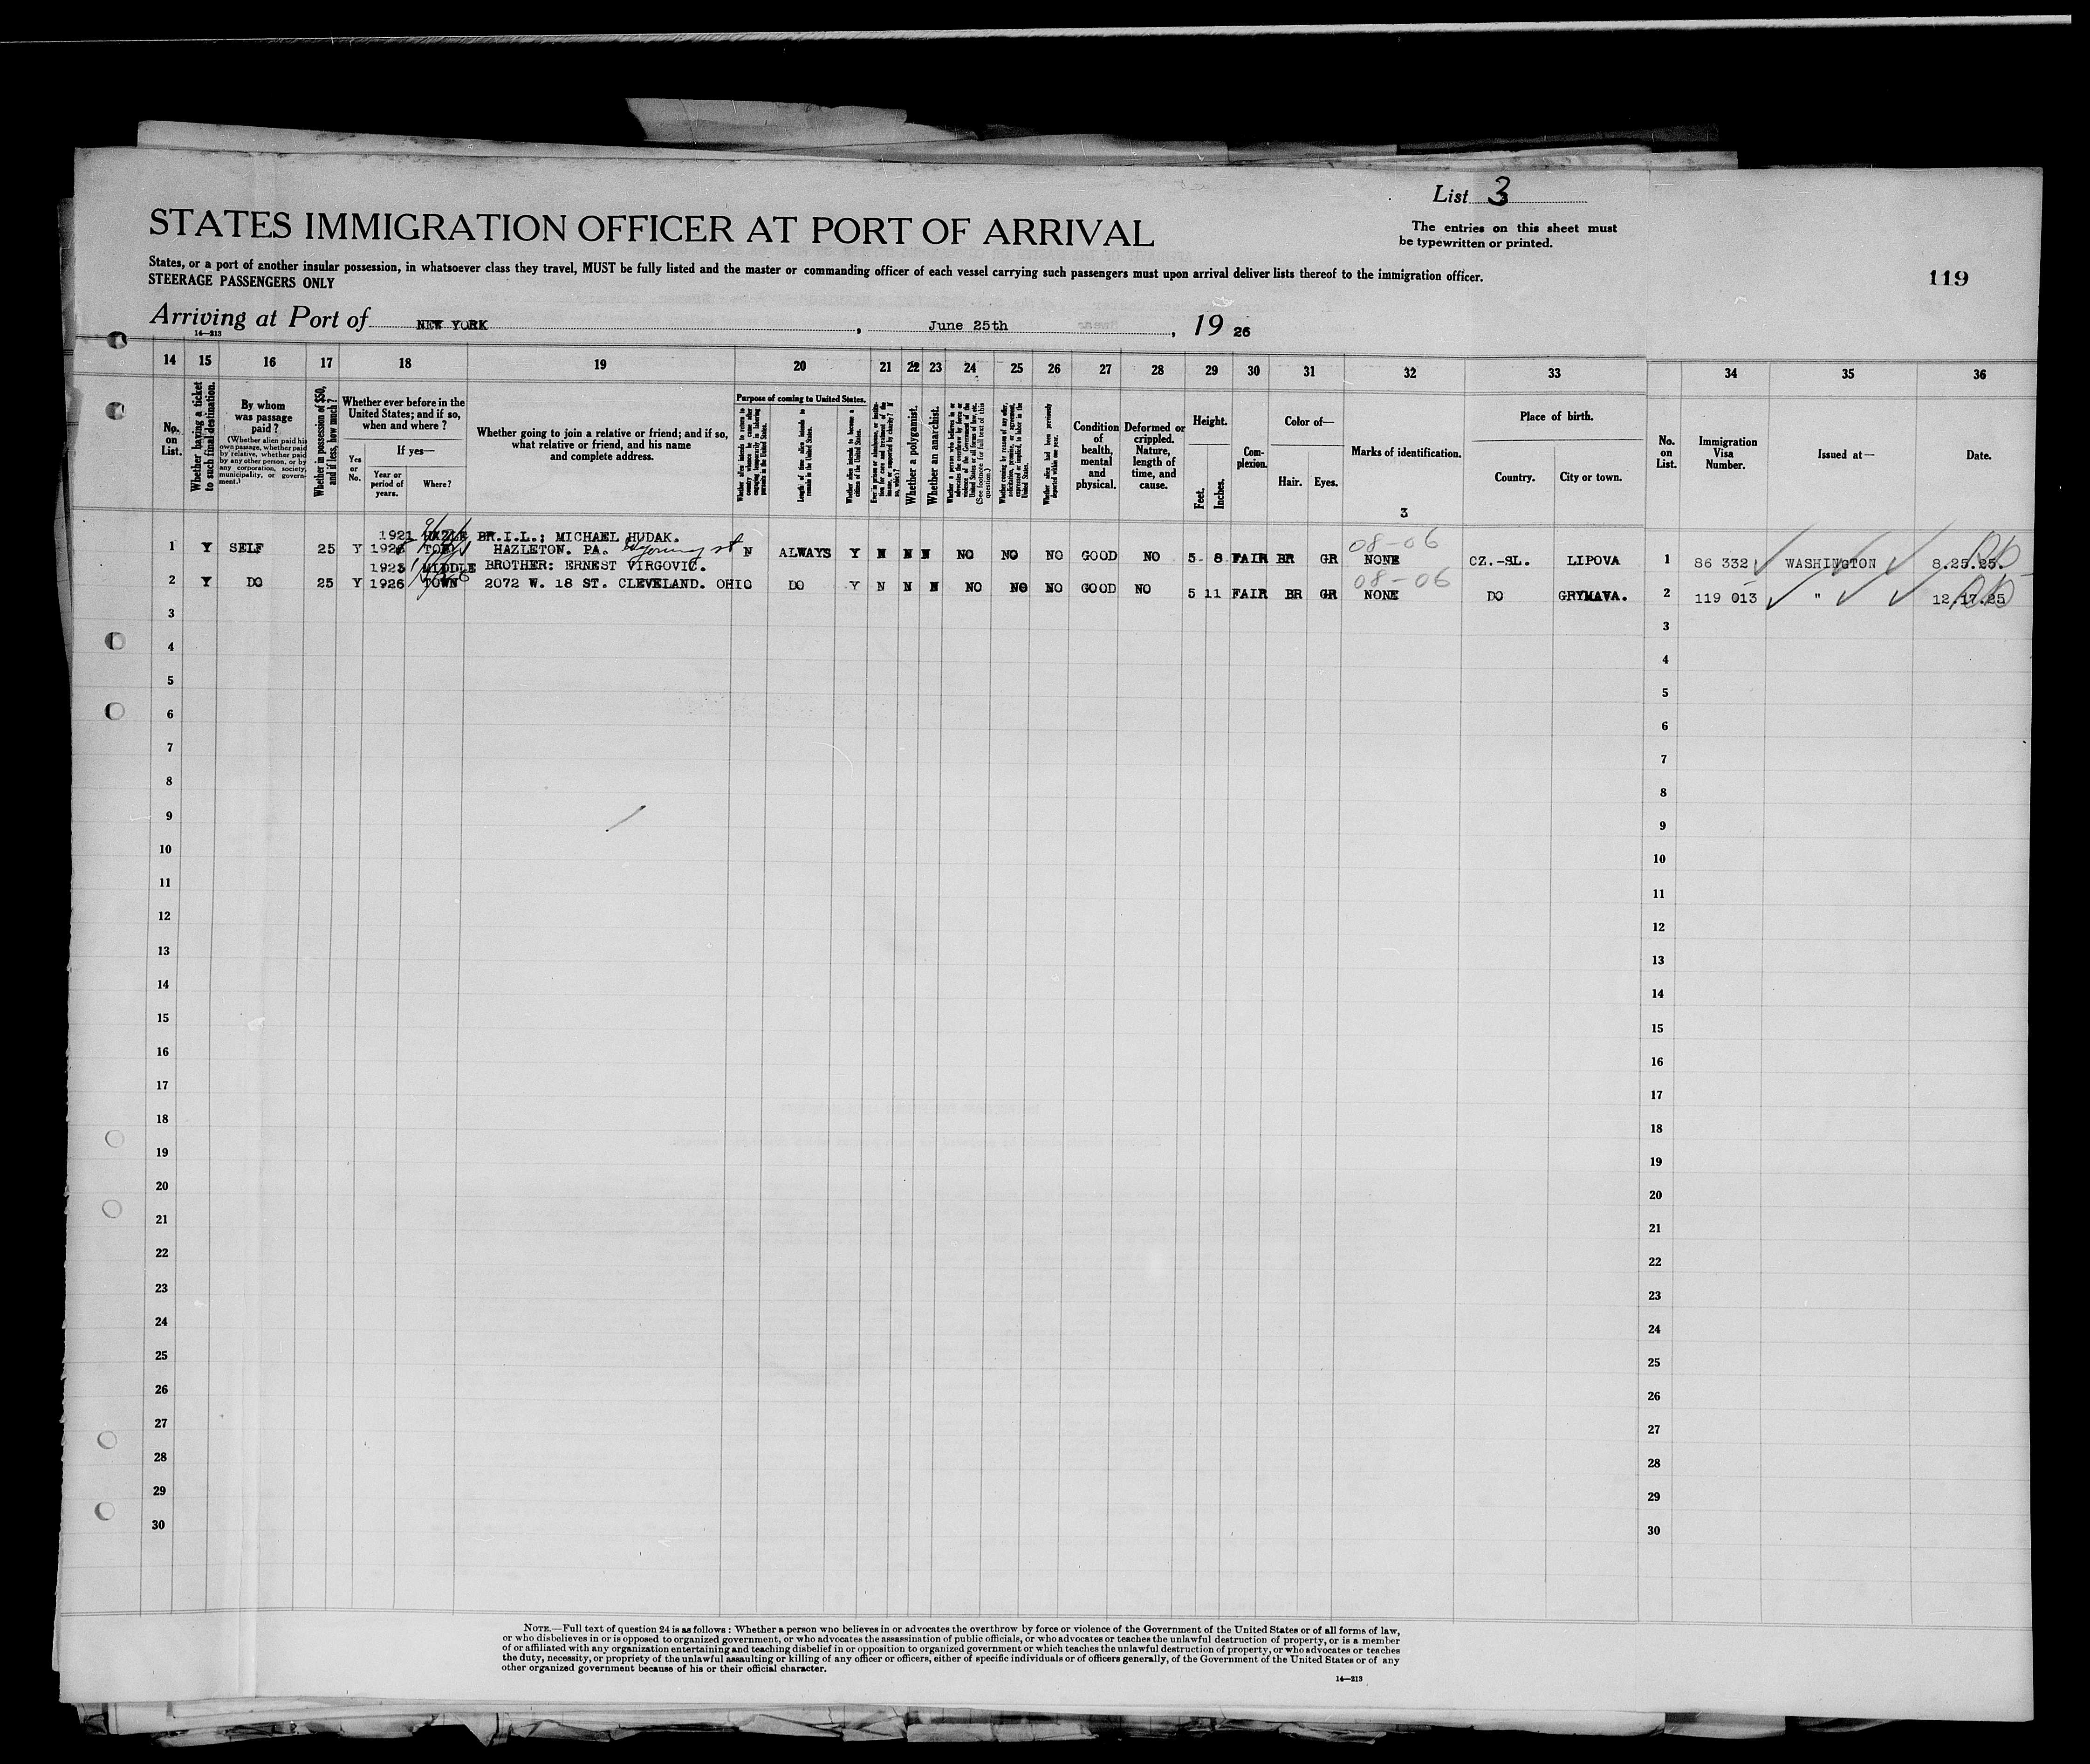 List 3
STATES IMMIGRATION OFFICER AT PORT OF ARRIVAL
The entries on this sheet must
be typewritten or printed.
States, or a port of another insular possession, in whatsoever class they travel, MUST be fully listed and the master or commanding officer of each vessel carrying such passengers must upon arrival deliver lists thereof to the immigration officer.
STEERAGE PASSENGERS ONLY
119
Arriving at Port of NEW YORK, June 25th, 19 26
14—213
14 15 16 17 18 19 20 21 22 23 24 25 26 27 28 29 30 31 32 33 34 35 36
No. on List.
Whether having a ticket to such final destination.
By whom was passage paid?
(Whether alien paid his own passage, whether paid by relative, whether paid by any other person, or by any corporation, society, municipality, or government.)
Whether in possession of $50, and if less, how much?
Whether ever before in the United States; and if so, when and where?
Yes or No.
If yes—
Year or period of years.
Where?
Whether going to join a relative or friend; and if so, what relative or friend, and his name and complete address.
Purpose of coming to United States.
Whether alien intends to return to country whence he came after engaging temporarily in laboring pursuits in the United States.
Length of time alien intends to remain in the United States.
Whether alien intends to become a citizen of the United States.
Whether a polygamist.
Whether an anarchist.
Whether alien had been previously deported within one year.
Condition of health, mental and physical.
Deformed or crippled. Nature, length of time, and cause.
Height.
Feet.
Inches.
Complexion.
Color of—
Hair.
Eyes.
Marks of identification.
3
Place of birth.
Country.
City or town.
No. on List.
Immigration Visa Number.
Issued at—
Date.
1921 HAZLE BR.I.L.; MICHAEL HUDAK. 08-06
1 Y SELF 25 Y 1926 TON HAZLETON. PA. Wyoming st N ALWAYS Y N N N NO NO NO GOOD NO 5 8 FAIR BR GR NONE CZ.-SL. LIPOVA 1 86 332 WASHINGTON 8.25.25.
MIDDLE BROTHER: ERNEST VIRGOVIC. 08-06
2 Y DO 25 Y 1926 TOWN 2072 W. 18 ST. CLEVELAND. OHIO DO Y N N N NO NO NO GOOD NO 5 11 FAIR BR GR NONE DO GRYMAVA. 2 119 013 " 12.17.25
3 3
4 4
5 5
6 6
7 7
8 8
9 9
10 10
11 11
12 12
13 13
14 14
15 15
16 16
17 17
18 18
19 19
20 20
21 21
22 22
23 23
24 24
25 25
26 26
27 27
28 28
29 29
30 30
NOTE.—Full text of question 24 is as follows: Whether a person who believes in or advocates the overthrow by force or violence of the Government of the United States or of all forms of law,
or who disbelieves in or is opposed to organized government, or who advocates the assassination of public officials, or who advocates or teaches the unlawful destruction of property, or is a member
of or affiliated with any organization entertaining and teaching disbelief in or opposition to organized government or which teaches the unlawful destruction of property, or who advocates or teaches
the duty, necessity, or propriety of the unlawful assaulting or killing of any officer or officers, either of specific individuals or of officers generally, of the Government of the United States or of any
other organized government because of his or their official character.
14—213